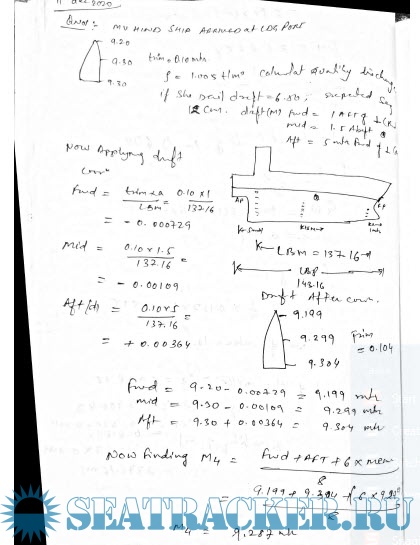 11 Dec 2020
Qno1:- MV HIND SHIP ARRIVED at LDG PORT
9.20
9.30
9.30
trim = 0.10 mtrs
ρ = 1.005 t/m³ calculat quality
if she sail draft = 6.80; suspected Sag
12 cm. draft(M) Fwd = 1 AFT of
mid = 1.5 Abaft
Aft = 5 mtr Fwd of
Now Applying draft
corrn
Fwd = trim x a / LBM = 0.10 x 1 / 137.16
= - 0.000729
Mid = 0.10 x 1.5 / 137.16 =
= - 0.00109
Aft (d) = 0.10 x 5 / 137.16 =
= + 0.00364
AP
FP
K 5 mtr
K 1.5 m
1 mtr
LBM = 137.16
LBP
143.16
Draft After corrn.
9.199
9.299
9.304
Trim
= 0.104
Fwd = 9.20 - 0.00729 = 9.199 mtr
mid = 9.30 - 0.00109 = 9.299 mtr
Aft = 9.30 + 0.00364 = 9.304 mtr
Now finding M4 = Fwd + AFT + 6 x mean / 8
= 9.199 + 9.304 + (6 x 9.299)
M4 = 9.287 mtr
SEATRACKER.RU